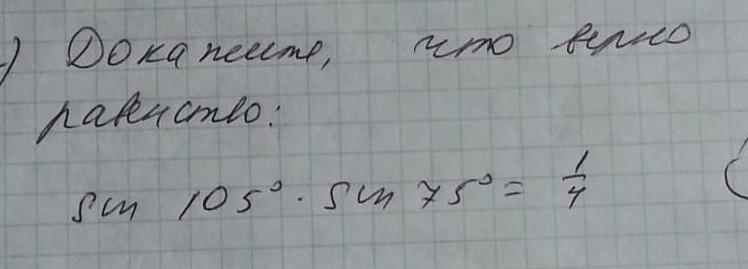 ) Докажите, что верно
равенство:
sin 105° · sin 75° = 1/4